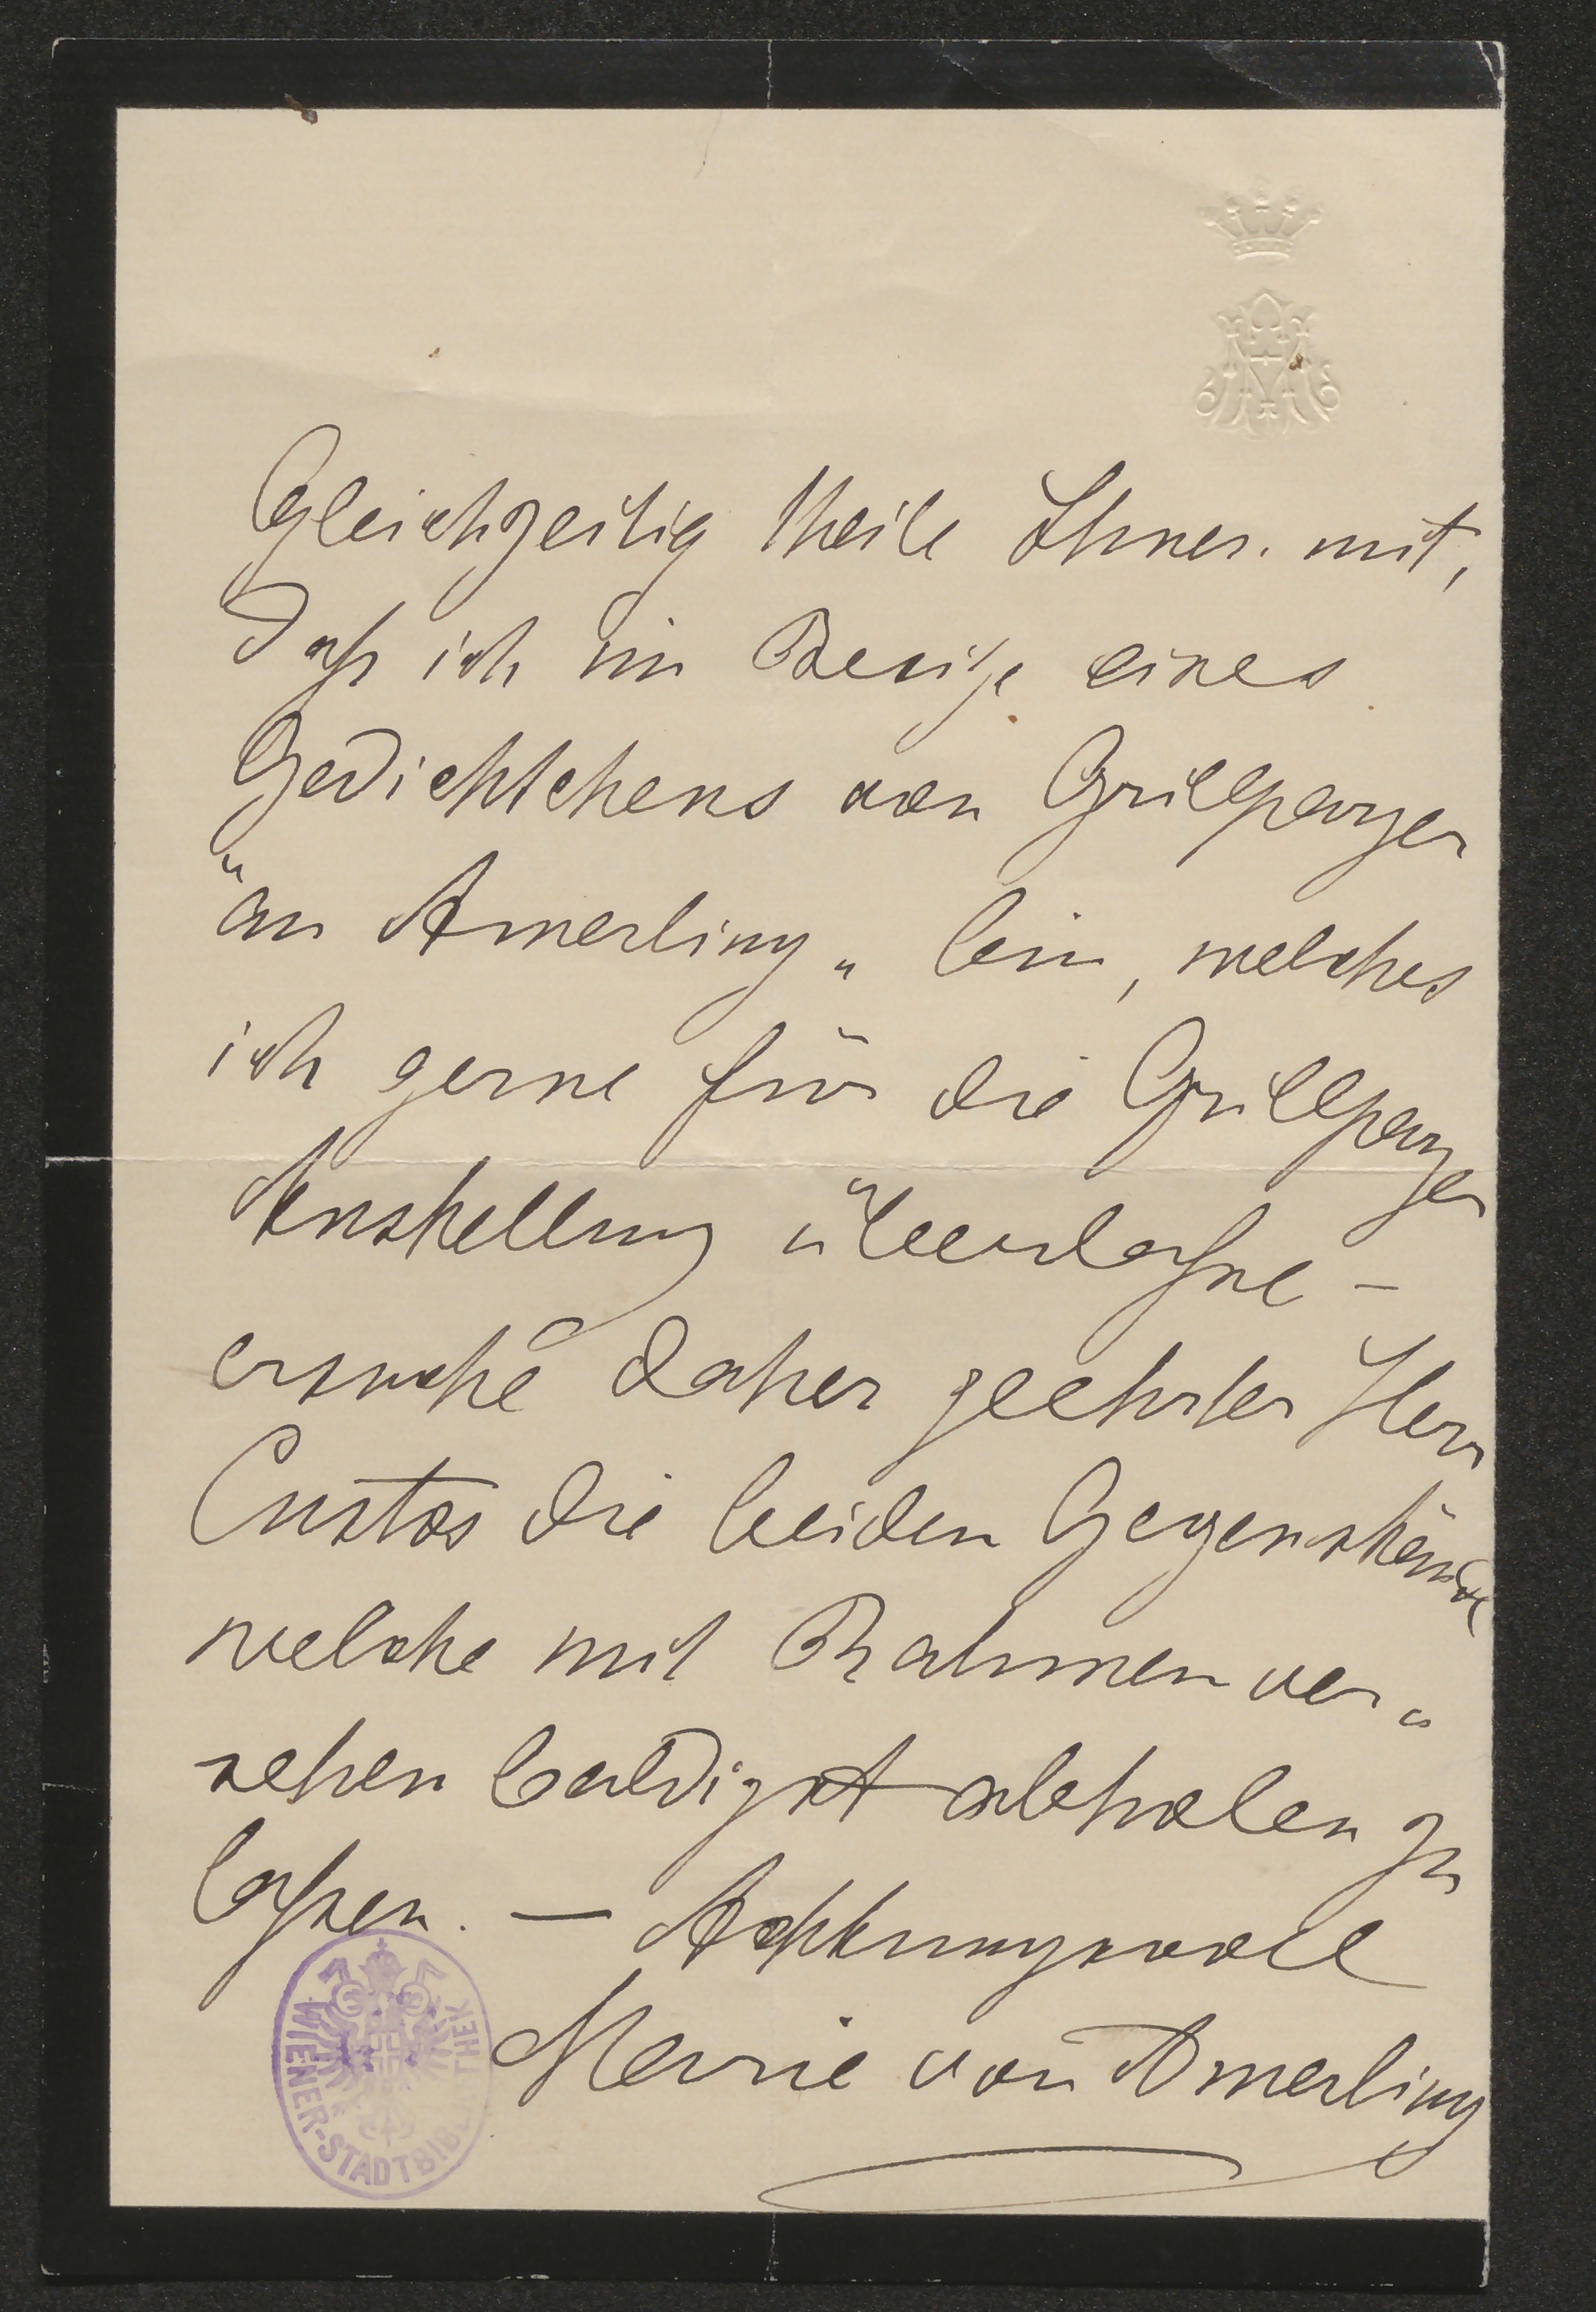 Gleichzeitig theile Ihnen mit,
daß ich im Besitze eines
Gedichtchens von Grillparzer
"an Amerling" bin, welches
ich gerne für die Grillparzer
Ausstellung überlaße –
ersuche daher geehrter Herr
Custos die beiden Gegenstände
welche mit Rahmen ver„
sehen baldigst abholen zu
laßen. — Achtungsvoll
Marie von Amerling
WIENER-STADTBIBLIOTHEK